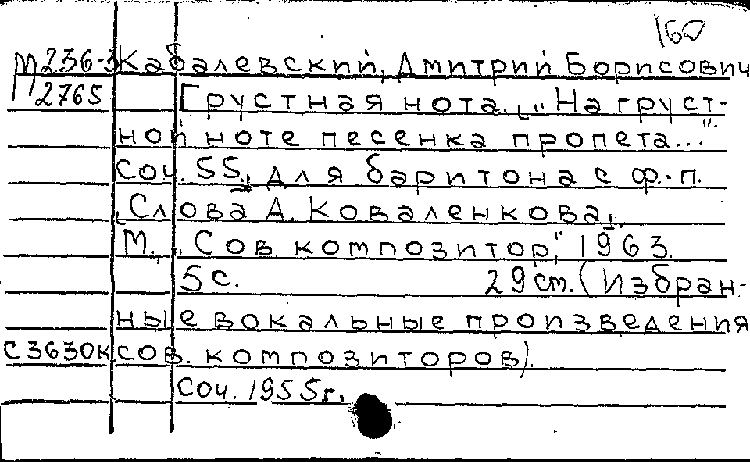 160
М 236-3 Кабалевский, Дмитрий Борисович
2765 Грустная нота. „На груст-
ной ноте песенка пропета..."
Соч. 55, для баритона с ф.-п.
Слова А. Коваленкова.
М., „Сов композитор", 1963.
5 с. 29 см. (Избран-
ные вокальные произведения
С3630К сов. композиторов).
Соч. 1955г.